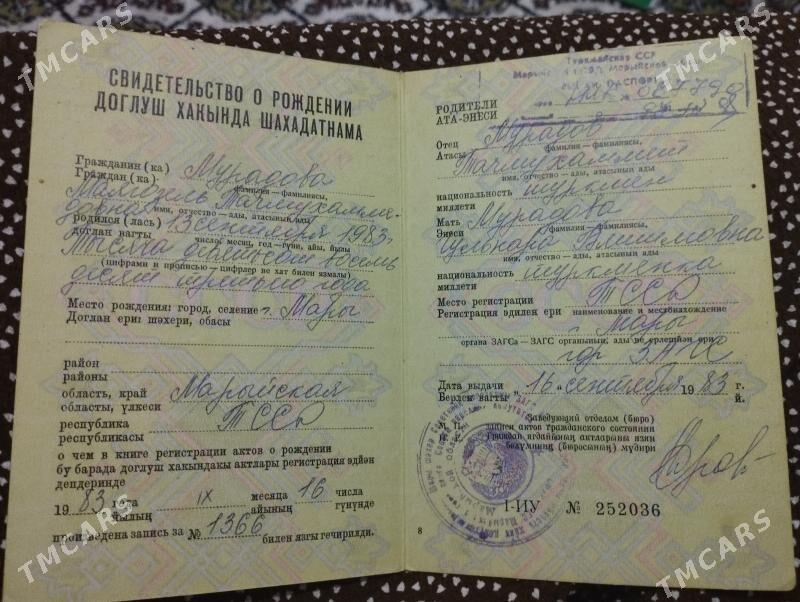 СВИДЕТЕЛЬСТВО О РОЖДЕНИИ
ДОГЛУШ ХАКЫНДА ШАХАДАТНАМА
Гражданин (ка) Мурадова
Граждан (ка)
фамилия – фамилиясы,
имя, отчество – ады, атасынын ады
родился (лась) 13 сентября 1983
доглан вагты
число, месяц, год – гүни, айы, йылы
Тысяча девятьсот восемь
(цифрами и прописью – цифрлер ве хат билен язмалы)
десят третьего года
Место рождения: город, селение г. Мары
Доглан ери: шәхери, обасы
район
районы
область, край Марыйская
области, үлкеси
республика ТССР
республикасы
о чем в книге регистрации актов о рождении
бу барада доглуш хакындакы актлары регистрация эдйән
депдеринде
1983 года IX месяца 16 числа
йылың айының гүнүнде
произведена запись за № 1366 билен язгы гечирилди.
Туркменская ССР
РОДИТЕЛИ
АТА-ЭНЕСИ
Отец Мурадов
Атасы
фамилия – фамилиясы,
Тачмухаммет
имя, отчество – ады, атасынын ады
национальность туркмен
миллети
Мать Мурадова
Энеси
фамилия – фамилиясы,
Гульнара
имя, отчество – ады, атасынын ады
национальность туркменка
миллети
Место регистрации ТССР
Регистрация эдилен ери наименование и местонахождение
г. Мары
органа ЗАГСа – ЗАГС органынын, ады ве ерлешйән ери
гор ЗАГС
Дата выдачи "16" сентября 1983 г.
Берлен вагты й.
М. П. Заведующий отделом (бюро)
записи актов гражданского состояния
Граждан ягдайының актларыны язян
бөлүминиң (бюросаның) мүдири
I-ИУ № 252036
8
TMCARS
TMCARS
TMCARS
TMCARS
TMCARS